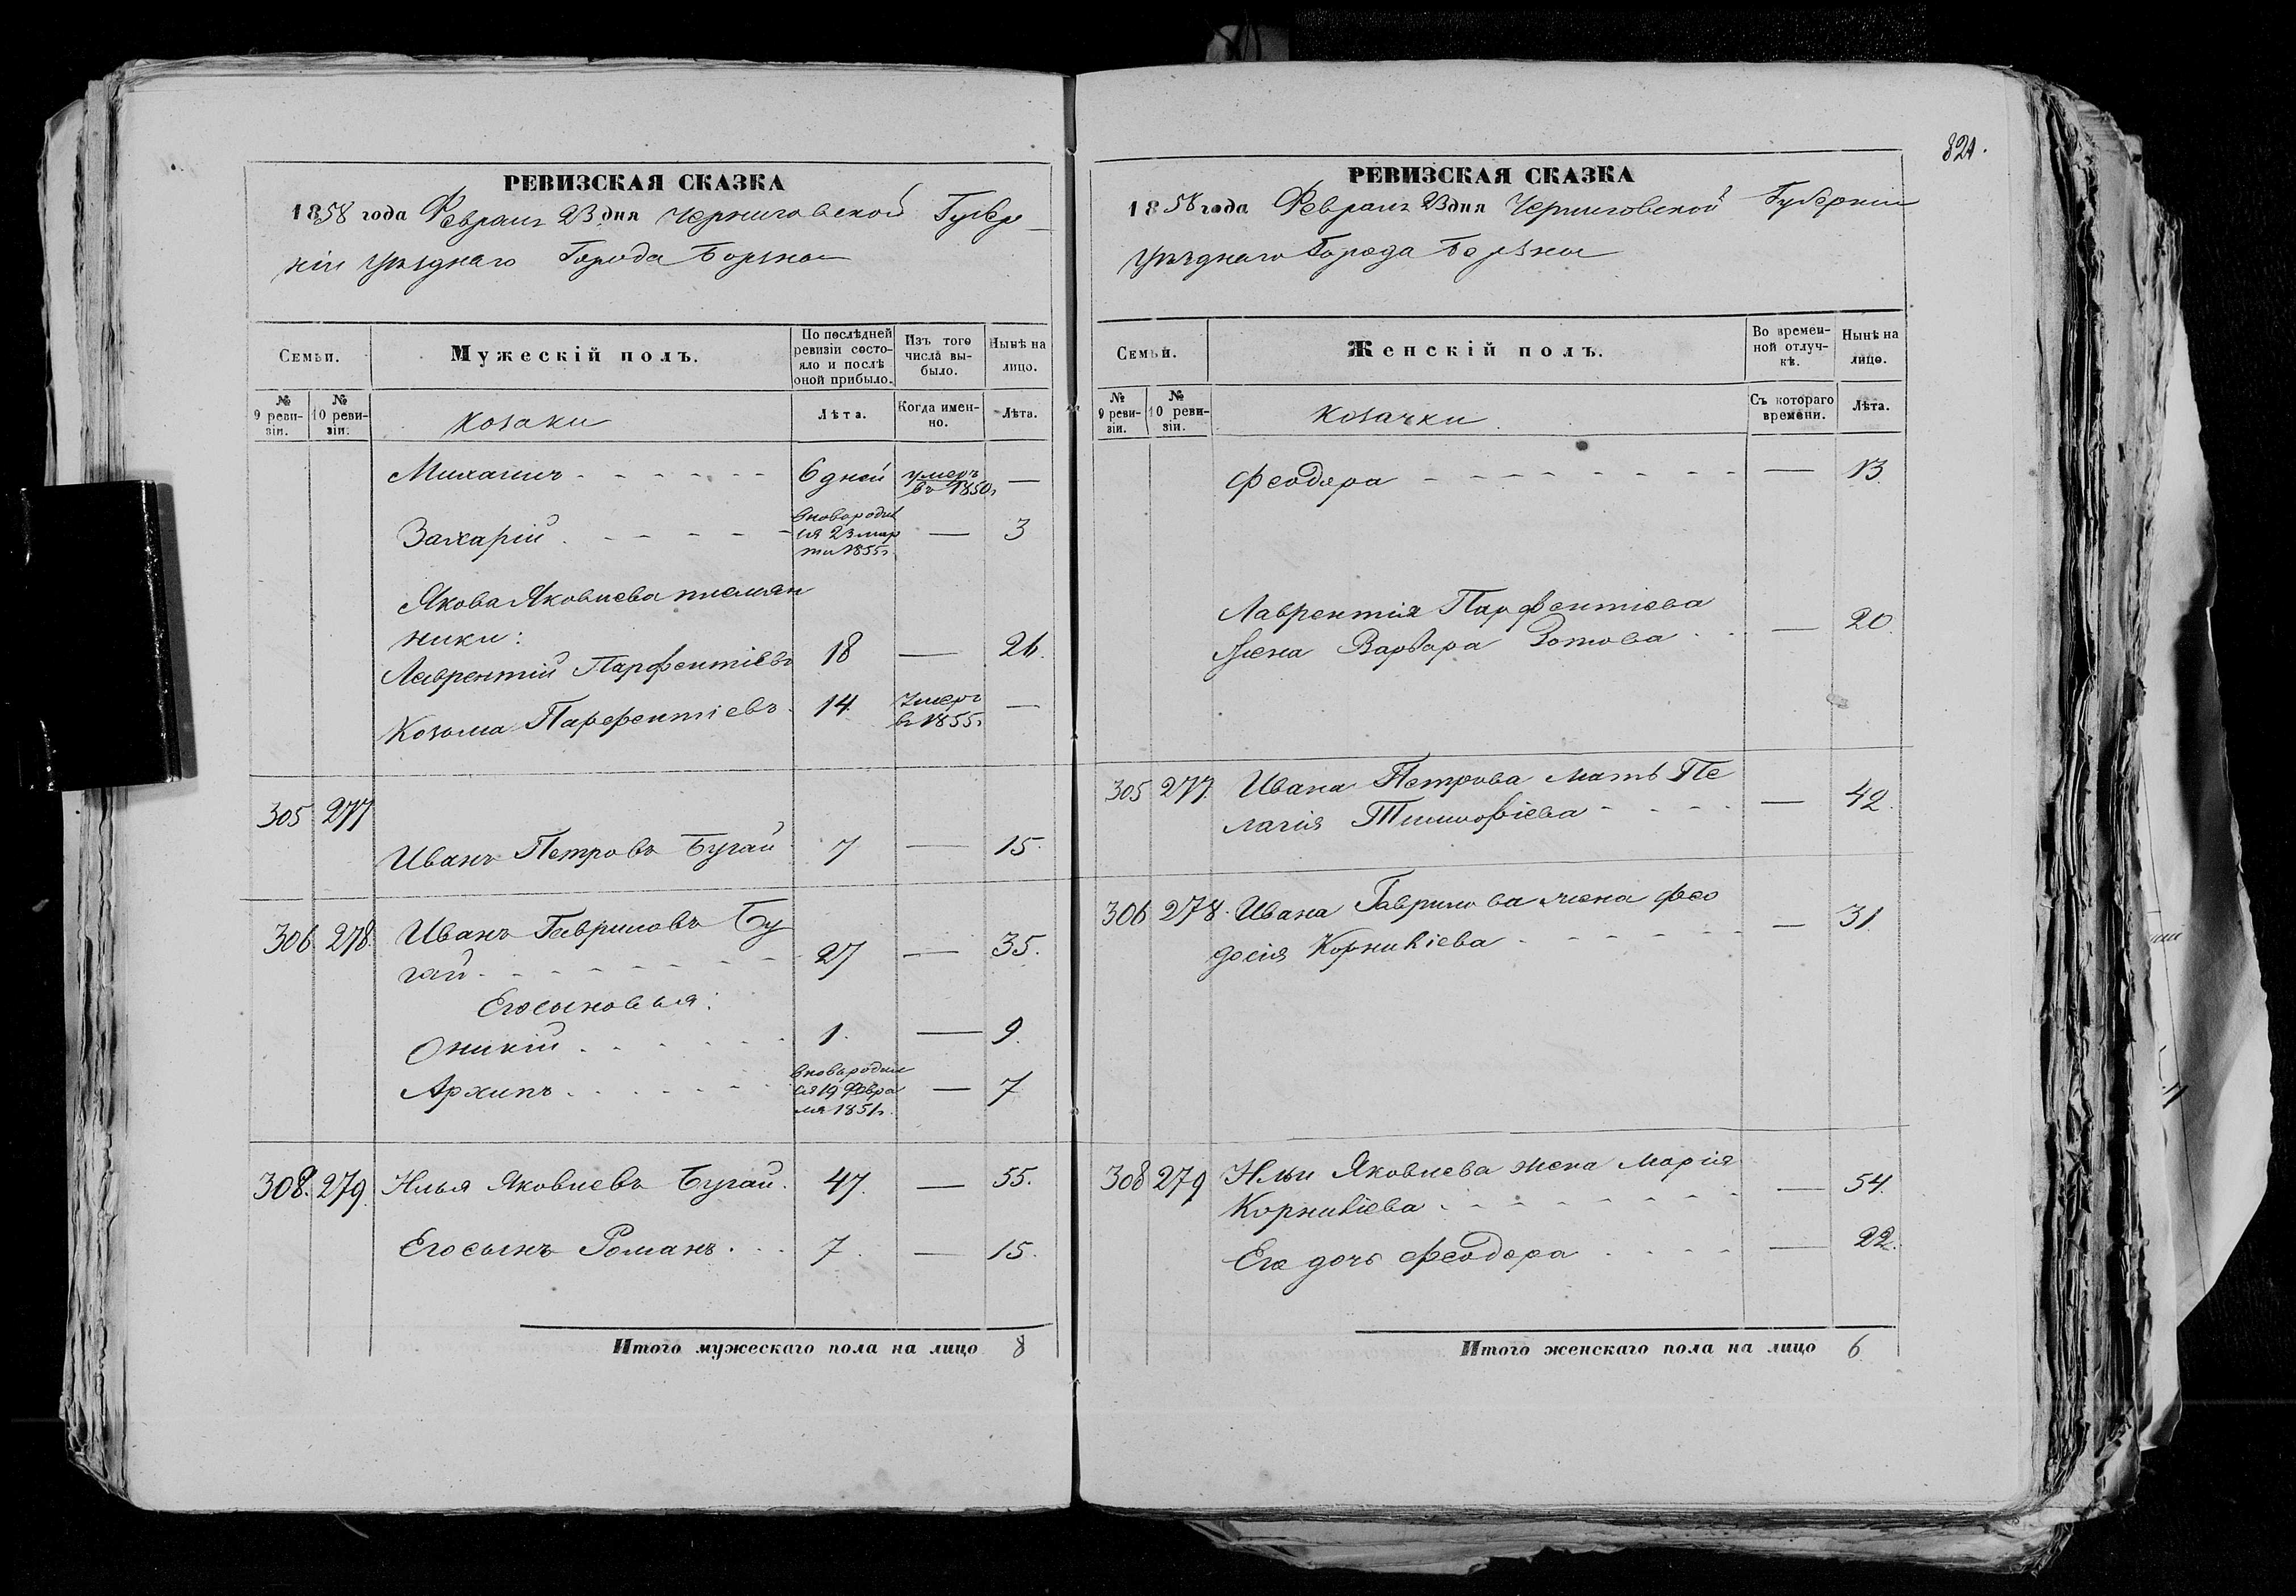 821.
РЕВИЗСКАЯ СКАЗКА
1858 года Февраля 23 дня Черниговской Губер
ніи Уѣзднаго Города Борзны
Семьи.
Мужескій полъ.
По послѣдней ревизіи состояло и послѣ оной прибыло.
Изъ того числа выбыло.
Нынѣ на лицо.
№ 9 ревизіи.
№ 10 ревизіи.
Козаки
Лѣта.
Когда именно.
Лѣта.
Михаилъ - - - - - - 6 дней умеръ въ 1850г —
Захарій - - - - - вновь родился 23 марта 1855г — 3
Якова Яковлева племян
ники:
Лаврентій Парфентіевъ 18 — 26.
Козьма Парфентіевъ 14 Умеръ въ 1855г —
305 277
Иванъ Петровъ Бугай 7 — 15.
306 278 Иванъ Гавриловъ Бу
гай - - - - - - - 27 — 35.
Его сыновья:
Оникій - - - - - - 1. — 9.
Архипъ - - - - - - вновь родился 19 Февраля 1851г. — 7
308. 279. Илья Яковлевъ Бугай. 47. — 55.
Его сынъ Романъ. . . 7. — 15.
Итого мужескаго пола на лицо 8
РЕВИЗСКАЯ СКАЗКА
1858 года Февраля 23 дня Черниговской Губерніи
Уѣзднаго Города Борзны
Семьи.
Женскій полъ.
Во временной отлучкѣ.
Нынѣ на лицо.
№ 9 ревизіи.
№ 10 ревизіи.
Козачки
Съ котораго времени.
Лѣта.
Феодора - - - - - - - - — 13.
Лаврентія Парфентіева
жена Варвара Зотова - - — 20.
305 277. Ивана Петрова мать Пе
лагія Тимофіева - - - - — 42.
306 278. Ивана Гаврилова жена Фео
досія Корніևіева - - - - - — 31
308 279 Ильи Яковлева жена Марія
Корніевіева - - - - - - - — 54.
Его дочь Феодора - - - - — 22.
Итого женскаго пола на лицо 6